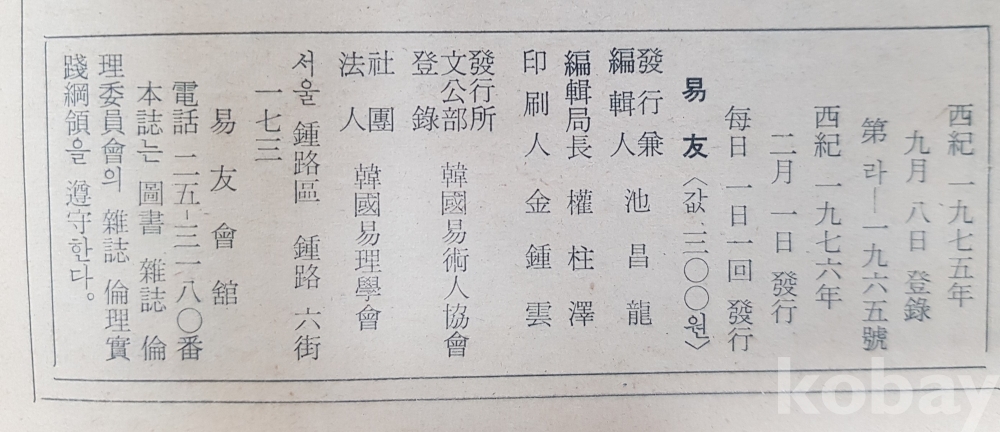 西紀 一九七五年
九月 八日 登錄
第 라—一九六五號
西紀 一九七六年
二月 一日 發行
每日 一日一回 發行
易友〈값 三〇〇원〉
發行兼
編輯人 池昌龍
編輯局長 權柱澤
印刷人 金鍾雲
發行所
文公部
登錄 韓國易術人協會
社團
法人 韓國易理學會
서울 鍾路區 鍾路 六街
一七三
易友會舘
電話 二五-三一八〇番
本誌는 圖書 雜誌 倫
理委員會의 雜誌 倫理實
踐綱領을 遵守한다。
kobay